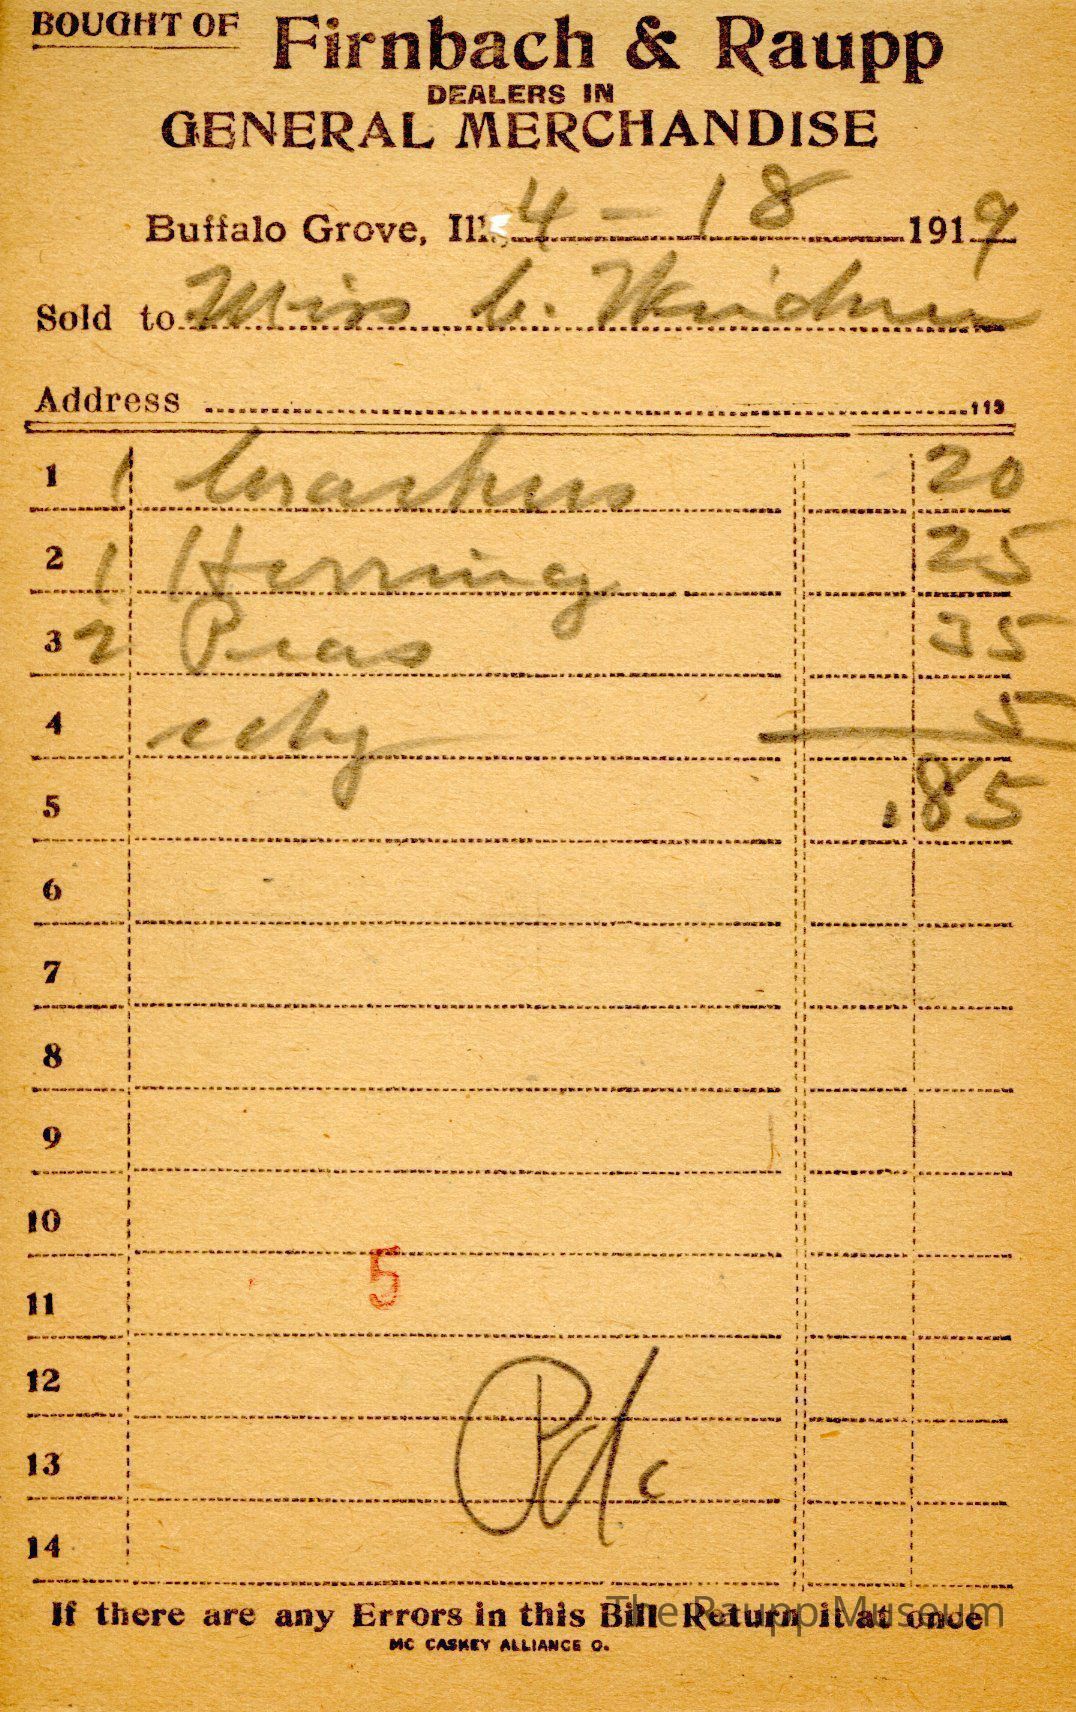 BOUGHT OF Firnbach & Raupp
DEALERS IN
GENERAL MERCHANDISE
Buffalo Grove, Ill. 4-18 1919
Sold to Miss C. Weidner
Address 113
1 1 Crackers 20
2 1 Herring 25
3 2 Peas 35
4 5
5 .85
6
7
8
9
10
5
11
12
Pd
13
14
If there are any Errors in this Bill Return it at once
The Raupp Museum
MC CASKEY ALLIANCE O.